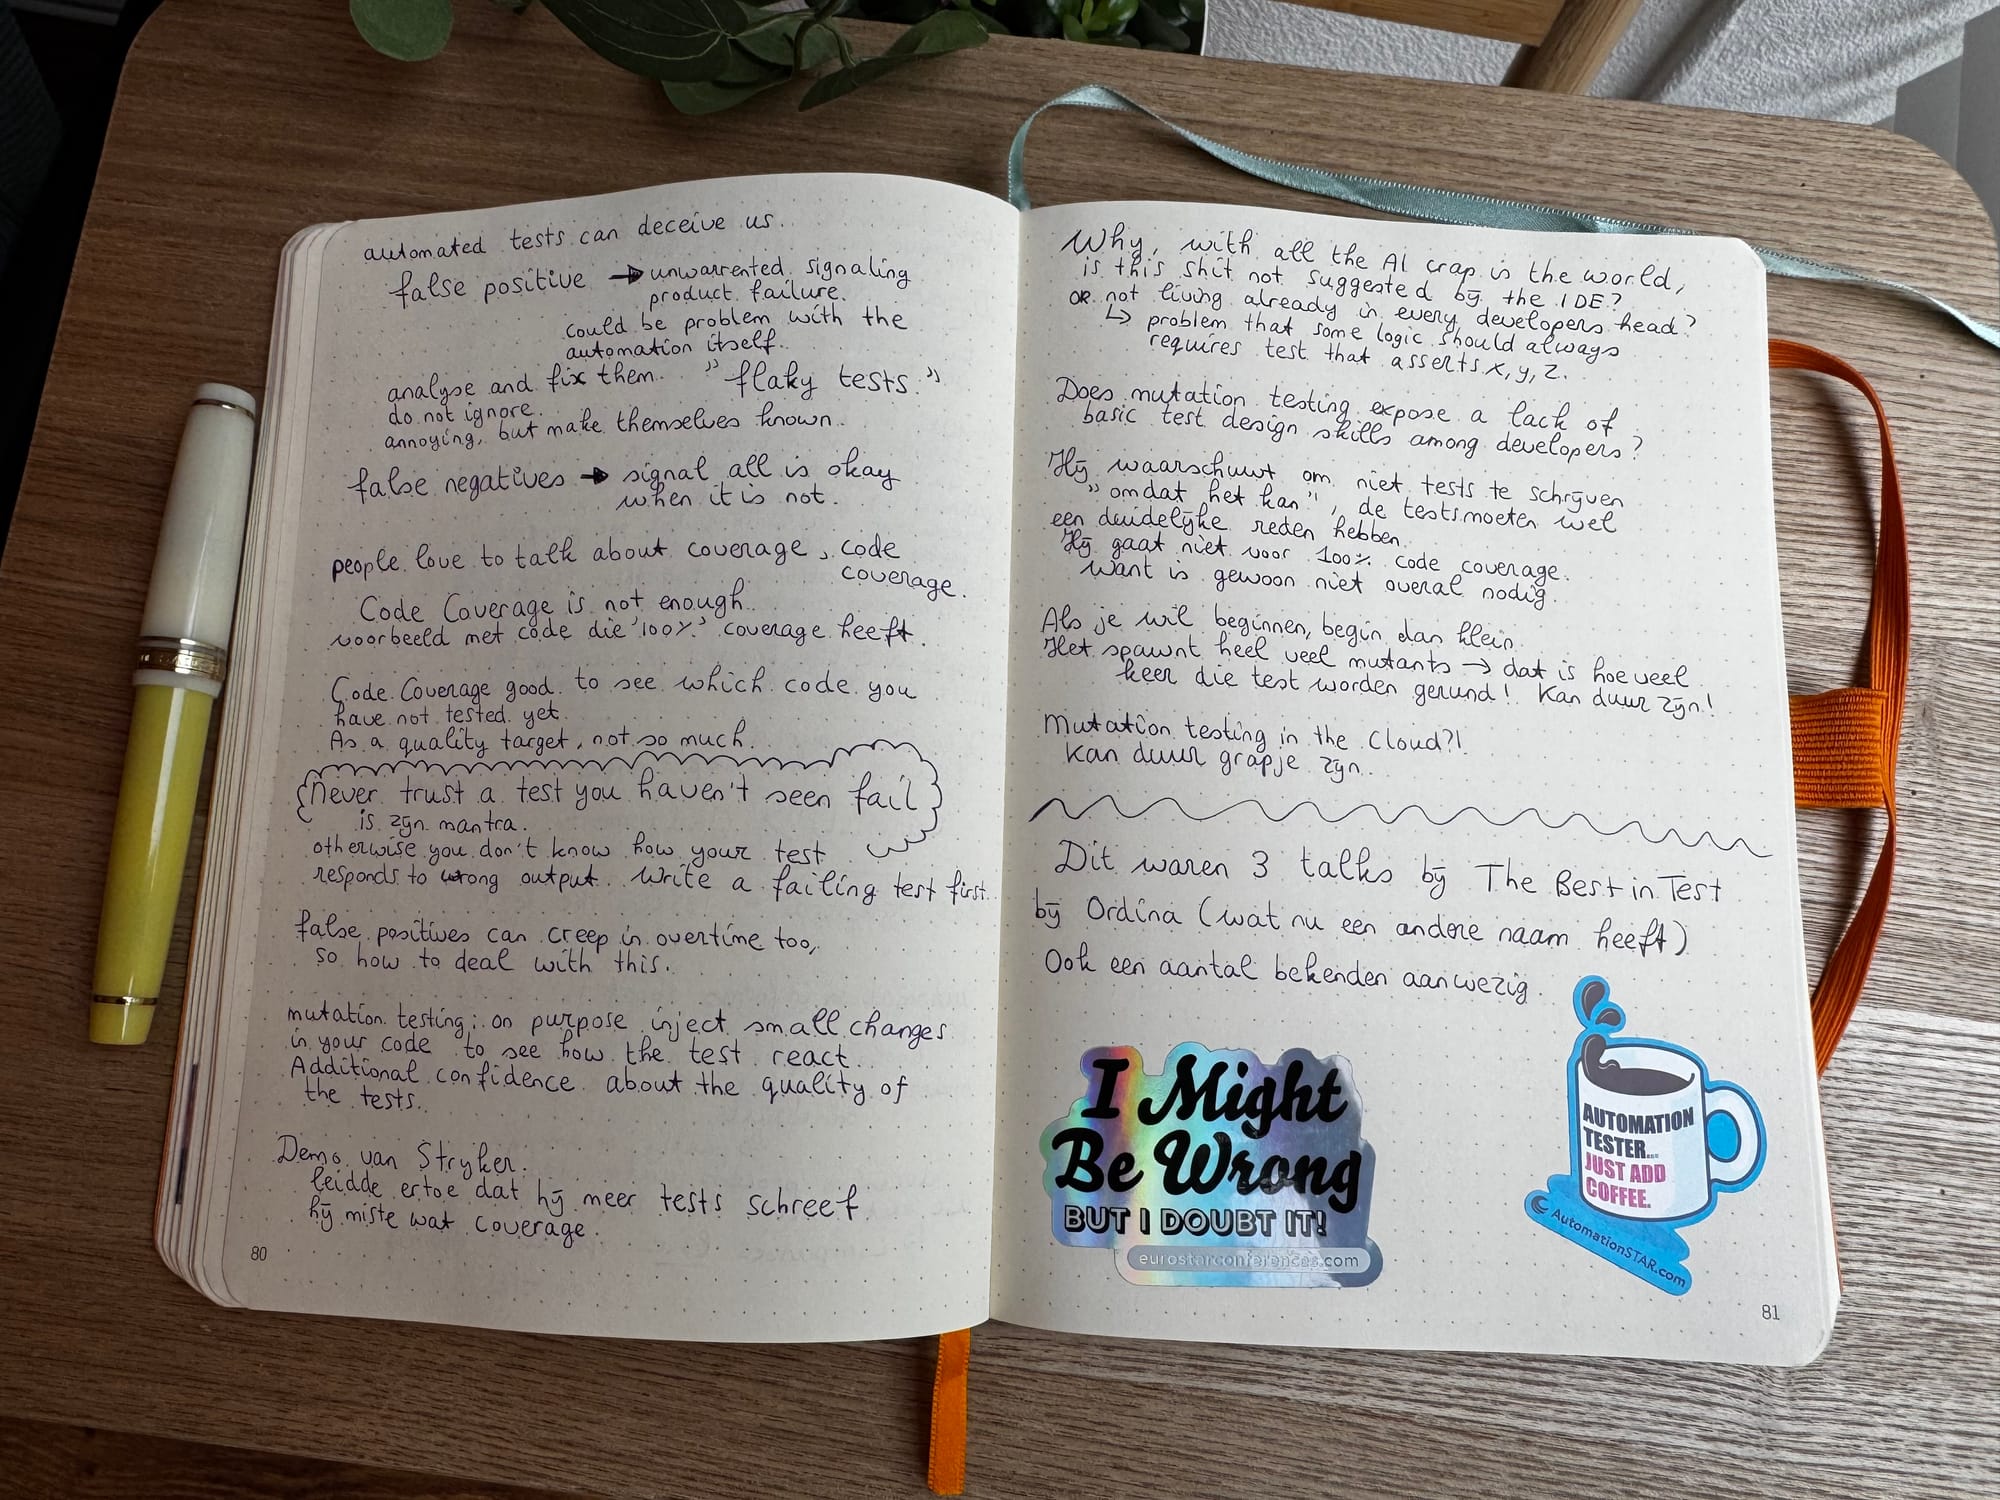 automated tests can deceive us.
false positive → unwarrented signaling
product failure.
could be problem with the
automation itself.
analyse and fix them. "flaky tests."
do not ignore.
annoying, but make themselves known.
false negatives → signal all is okay
when it is not.
people love to talk about coverage, code
coverage.
Code Coverage is not enough.
voorbeeld met code die '100%' coverage heeft.
Code Coverage good to see which code you
have not tested yet.
As a quality target, not so much.
Never trust a test you haven't seen fail
is zijn mantra.
otherwise you don't know how your test
responds to wrong output. Write a failing test first.
false positives can creep in overtime too,
so how to deal with this.
mutation testing: on purpose inject small changes
in your code to see how the test react.
Additional confidence about the quality of
the tests.
Demo van Stryker.
leidde ertoe dat hij meer tests schreef
hij miste wat coverage.
80
Why, with all the AI crap in the world,
is this shit not suggested by the IDE?
OR not living already in every developers head?
↳ problem that some logic should always
requires test that asserts x, y, z.
Does mutation testing expose a lack of
basic test design skills among developers?
Hij waarschuwt om niet tests te schrijven
"omdat het kan", de tests moeten wel
een duidelijke reden hebben.
Hij gaat niet voor 100% code coverage.
want is gewoon niet overal nodig.
Als je wil beginnen, begin dan klein.
Het spawnt heel veel mutants → dat is hoeveel
keer die test worden gerund! Kan duur zijn!
Mutation testing in the Cloud?!
Kan duur grapje zijn.
Dit waren 3 talks bij The Best in Test
bij Ordina (wat nu een andere naam heeft)
Ook een aantal bekenden aanwezig.
I Might
Be Wrong
BUT I DOUBT IT!
eurostarconferences.com
AUTOMATION
TESTER...
JUST ADD
COFFEE.
AutomationSTAR.com
81